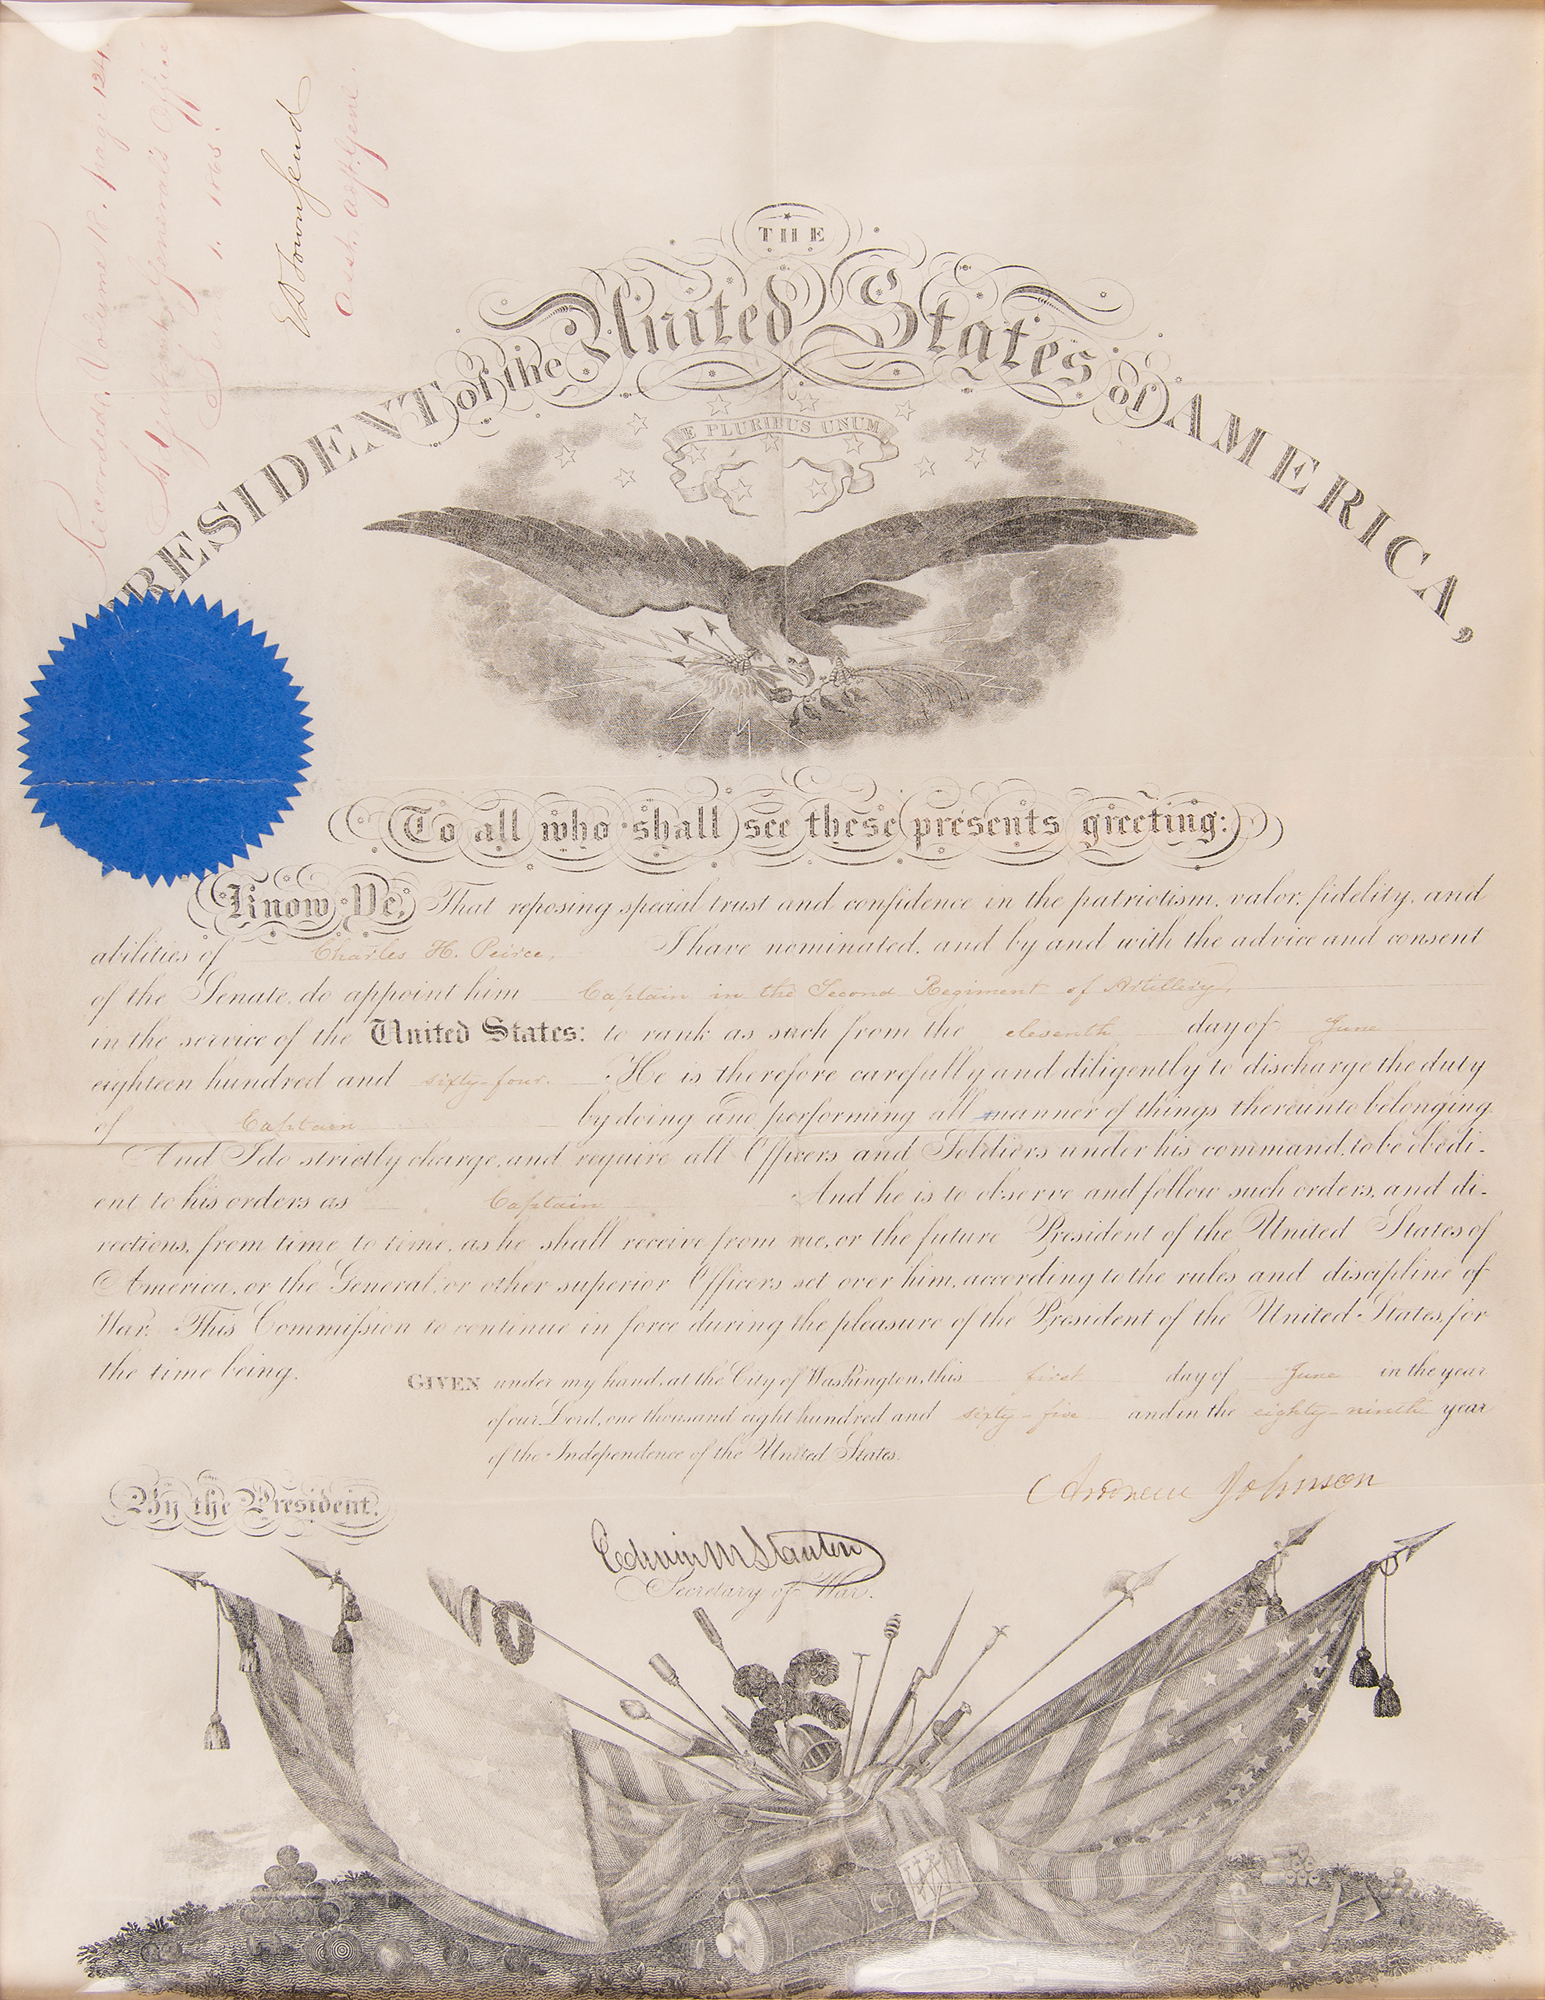 Recorded, Volume 12. page 124.
Adjutant General's Office
1. 1865.
E D Townsend
Asst. Adjt. Genl.
THE
PRESIDENT of the United States of AMERICA,
E PLURIBUS UNUM
To all who shall see these presents greeting:
Know Ye, That reposing special trust and confidence in the patriotism, valor, fidelity, and
abilities of Charles H. Peirce, I have nominated, and by and with the advice and consent
of the Senate, do appoint him Captain in the Second Regiment of Artillery,
in the service of the United States: to rank as such from the eleventh day of June
eighteen hundred and sixty-four. He is therefore carefully and diligently to discharge the duty
of Captain by doing and performing all manner of things thereunto belonging.
And I do strictly charge, and require all Officers and Soldiers under his command, to be obedi-
ent to his orders as Captain And he is to observe and follow such orders, and di-
rections, from time to time, as he shall receive from me, or the future President of the United States of
America, or the General, or other superior Officers set over him, according to the rules and discipline of
War. This Commission to continue in force during the pleasure of the President of the United States, for
the time being.
GIVEN under my hand, at the City of Washington, this first day of June in the year
of our Lord, one thousand eight hundred and sixty-five and in the eighty-ninth year
of the Independence of the United States.
Andrew Johnson
By the President.
Edwin M Stanton
Secretary of War.